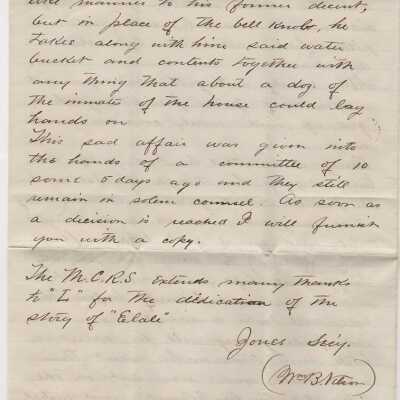 manner to his former decent,
but in place of the bell knobs, he
takes along with him said water
bucket and contents together with
any thing that about a dog. of
the inmate of the house could lay
hands on
This sad affair was given into
the hands of a committee of 10
some 5 days ago and they still
remain in solem counsel. As soon as
a decision is reached I will furnish
you with a copy.
The M.C.R.S. extends many thanks
to "L" for the dedication of the
story of "Elali"
Jones Secy.
(Wm B Nelson)